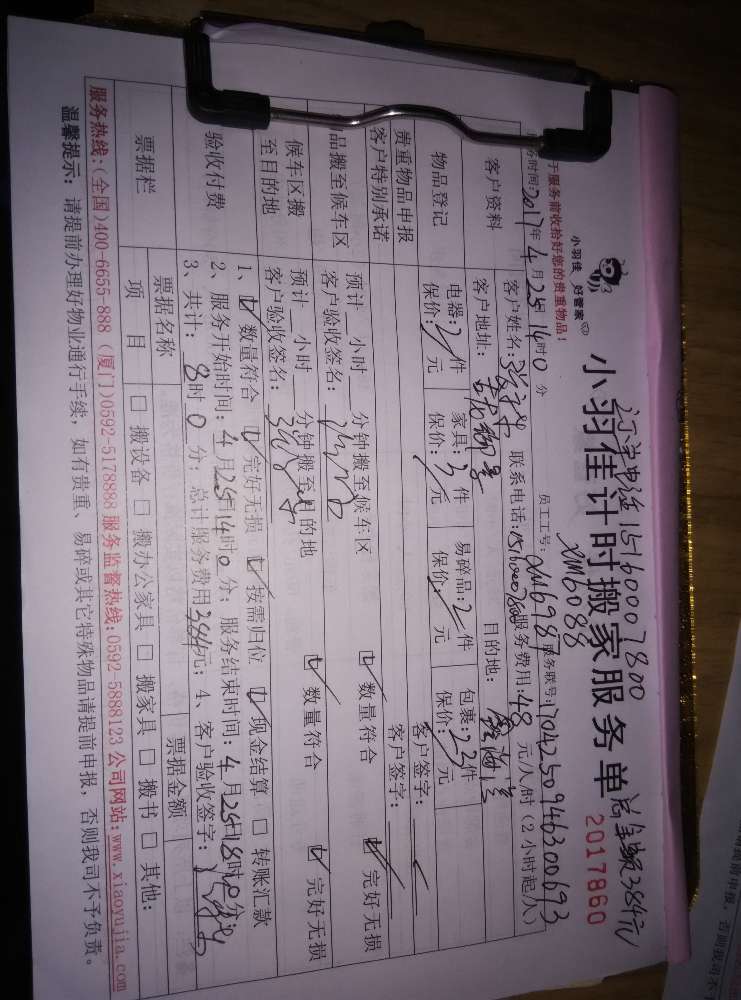 小羽佳 好管家
订单电话 15160007800
总金额384元
小羽佳计时搬家服务单
2017860
XM6088
于服务前收拾好您的贵重物品!
务时间:2017年4月25日14时0分
员工工号:XM6981
服务联号:1704250946300693
客户资料
客户姓名:
联系电话:15160007800
服务费用:48元/人/时(2小时起/人)
客户地址:
目的地:
物品登记
电器:2件
家具:3件
易碎品:2件
包裹:23件
保价: 元
保价: 元
保价: 元
保价: 元
贵重物品申报
客户签字:
客户特别承诺
客户签字:
品搬至候车区
预计 小时 分钟搬至候车区
数量符合
完好无损
客户验收签名:
候车区搬至目的地
预计 小时 分钟搬至目的地
数量符合
完好无损
客户验收签名:
验收付费
1、数量符合 完好无损 按需归位 现金结算 转账汇款
2、服务开始时间:4月25日14时0分;服务结束时间:4月25日18时0分;
3、共计:8时0分;总计服务费用384元;4、客户验收签字:
票据栏
票据名称
票据金额
项目
搬设备 搬办公家具 搬家具 搬书 其他:
服务热线:(全国)400-6655-888 (厦门)0592-5178888 服务监督热线:0592-5888123 公司网站:www.xiaoyujia.com
温馨提示: 请提前办理好物业通行手续,如有贵重、易碎或其它特殊物品请提前申报,否则我司不予负责。